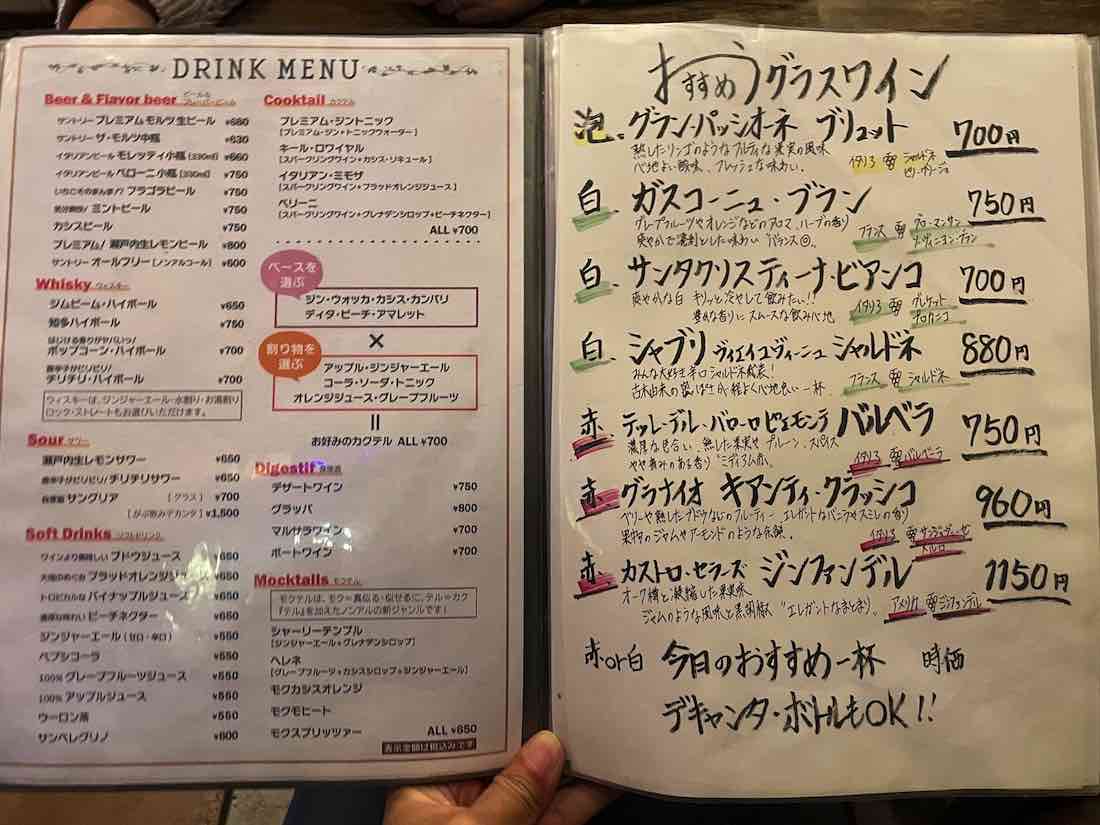 DRINK MENU
Beer & Flavor beer ビール& フレーバービール
サントリー プレミアム モルツ 生ビール ¥680
サントリー ザ・モルツ中瓶 ¥630
イタリアンビール モレッティ小瓶 (330ml) ¥660
イタリアンビール ペローニ小瓶 (330ml) ¥750
いちごそのまんま!? フラゴラビール ¥750
気分爽快! ミントビール ¥750
カシスビール ¥750
プレミアム! 瀬戸内生レモンビール ¥800
サントリー オールフリー [ノンアルコール] ¥600
Whisky ウィスキー
ジムビーム・ハイボール ¥650
知多ハイボール ¥750
はじける香りがヤバいっ!
ポップコーン・ハイボール ¥700
唐辛子がピリピリ!
チリチリ・ハイボール ¥700
ウィスキーは、ジンジャーエール・水割り・お湯割り
ロック・ストレートもお選びいただけます。
Sour サワー
瀬戸内生レモンサワー ¥650
唐辛子がピリピリ! チリチリサワー ¥650
自家製 サングリア [グラス] ¥700
[がぶ飲みデカンタ] ¥1,500
Soft Drinks ソフトドリンク
ワインより美味しい ブドウジュース ¥650
ブラッドオレンジジュース ¥650
トロピカルな パイナップルジュース ¥650
濃厚な味わい ピーチネクター ¥660
ジンジャーエール (甘口・辛口) ¥550
ペプシコーラ ¥550
100% グレープフルーツジュース ¥550
100% アップルジュース ¥550
ウーロン茶 ¥550
サンペレグリノ ¥600
Cocktail カクテル
プレミアム・ジントニック
[プレミアム・ジン+トニックウォーター]
キール・ロワイヤル
[スパークリングワイン+カシス・リキュール]
イタリアン・ミモザ
[スパークリングワイン+ブラッドオレンジジュース]
ベリーニ
[スパークリングワイン+グレナデンシロップ+ピーチネクター]
ALL ¥700
ベースを
選ぶ
ジン・ウォッカ・カシス・カンパリ
ディタ・ピーチ・アマレット
×
割り物を
選ぶ
アップル・ジンジャーエール
コーラ・ソーダ・トニック
オレンジジュース・グレープフルーツ
=
お好みのカクテル ALL ¥700
Digestif 食後酒
デザートワイン ¥750
グラッパ ¥800
マルサラワイン ¥700
ポートワイン ¥700
Mocktails モクテル
モクテルは、モク=真似る・似せるに、テル=カク
『テル』を加えたノンアルの新ジャンルです!
シャーリーテンプル
[ジンジャーエール+グレナデンシロップ]
ヘレネ
[グレープフルーツ+カシスシロップ+ジンジャーエール]
モクカシスオレンジ
モクモヒート
モクスプリッツァー ALL ¥650
表示金額は税込みです
おすすめグラスワイン
泡. グラン・パッシオーネ ブリュット 700円
熟したリンゴのようなフルティな果実の風味
心地よい酸味、フレッシュな味わい。
イタリア シャルドネ
白. ガスコーニュ・ブラン 750円
グレープフルーツやオレンジなどのアロマ、ハーブの香り
爽やかで溌剌とした味わい バランス◎。
フランス グロ・マンサン
ソーヴィニヨン・ブラン
白. サンタクリスティーナ・ビアンコ 700円
爽やかな白 キリッと冷やして飲みたい!!
豊かな香りに スムースな飲み心地
イタリア グレケット
プロカニコ
白. シャブリ ヴィエイユヴィーニュ シャルドネ 880円
みんな大好き辛口シャルドネ代表!
古木由来の蜜っぽさが程よく心地良い一杯
フランス シャルドネ
赤. テッレ・デル・バローロ ピエモンテ バルベラ 750円
濃厚な色合い、熟した果実やプルーン、スパイス
やや青みのある香り ミディアム赤。
イタリア バルベーラ
赤. グラナイオ キアンティ・クラッシコ 960円
ベリーや熟したブドウなどのフルーティー エレガントなバニラやスミレの香り
果物のジャムやアーモンドのような余韻。
イタリア サンジョヴェーゼ
メルロ
赤. カストロ・セラーズ ジンファンデル 1150円
オーク樽と凝縮した果実味
ジャムのような風味と黒胡椒 "エレガントなまとまり。
アメリカ ジンファンデル
赤or白 今日のおすすめ一杯 時価
デキャンタ・ボトルもOK!!